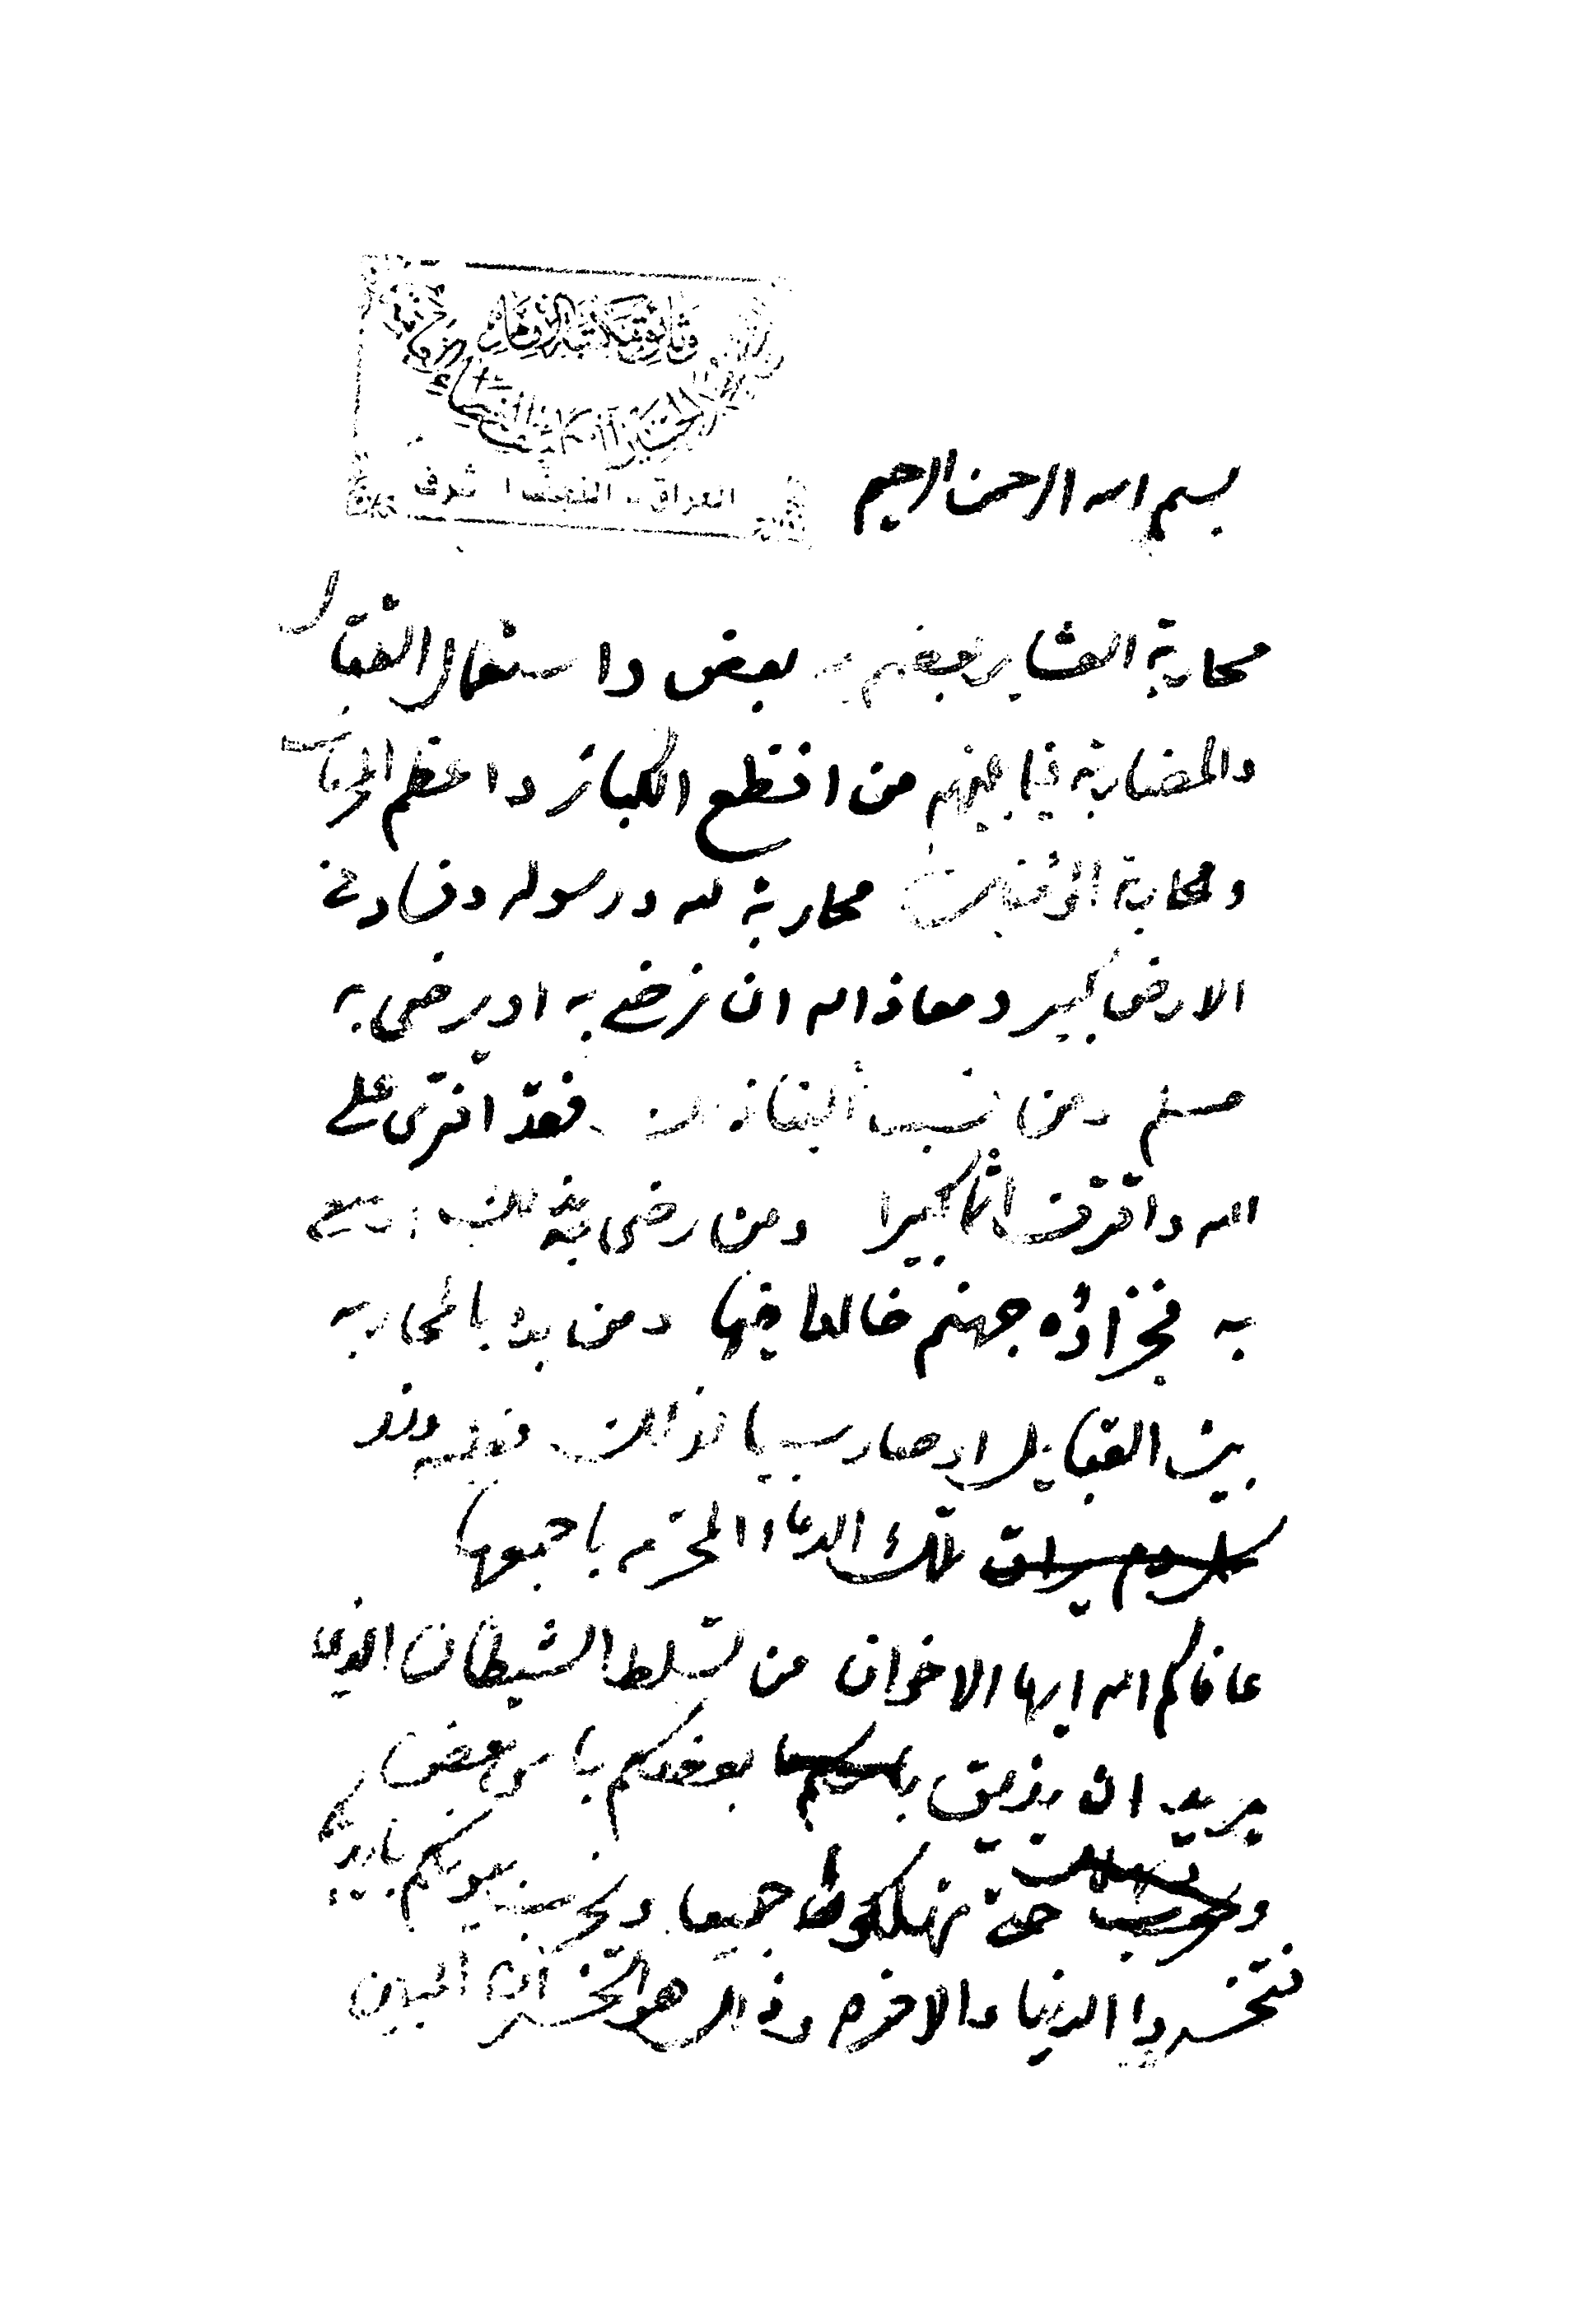 العراق - النجف الأشرف
بسم الله الرحمن الرحيم
محاربة العشاير بعضهم بعض واستعمال القتال
والمضاربة فيما بينهم من افظع الكبائر واعظم الجرائم
ومحاربة المؤمنين محاربة لله ورسوله وفساد في
الارض كبير ومعاذ الله ان نرضى به او يرضى به
مسلم ومن نسب الينا ذلك فقد افترى على
الله واقترف اثما كبيرا ومن رضى بذلك او سعى
به فجزاؤه جهنم خالدا فيها ومن بدء بالمحاربه
بين القبايل او صار سببا لذلك فعليه وزر
تلك الدماء المحترمه باجمعها
عافاكم الله ايها الاخوان من تسلط الشيطان الذي
يريد ان يذيق بعضكم باس بعض
حتى تهلكوا جميعا ويخرب بيوتكم بايديكم
فتخسروا الدنيا والاخره وذلك هو الخسران المبين